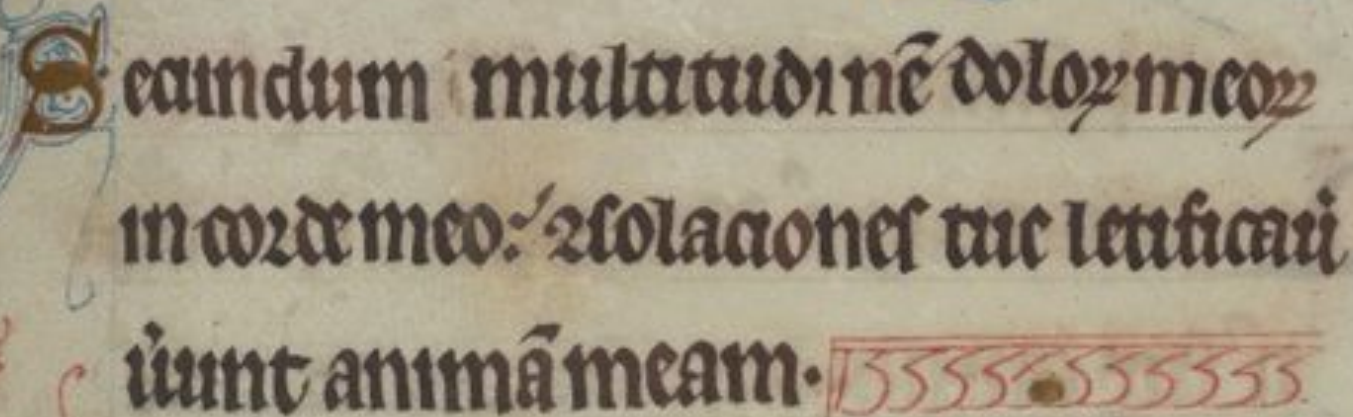 Secundum multitudinē doloꝝ meoꝝ
in corde meo: ꝯsolaciones tue letificau
uerunt animā meam.